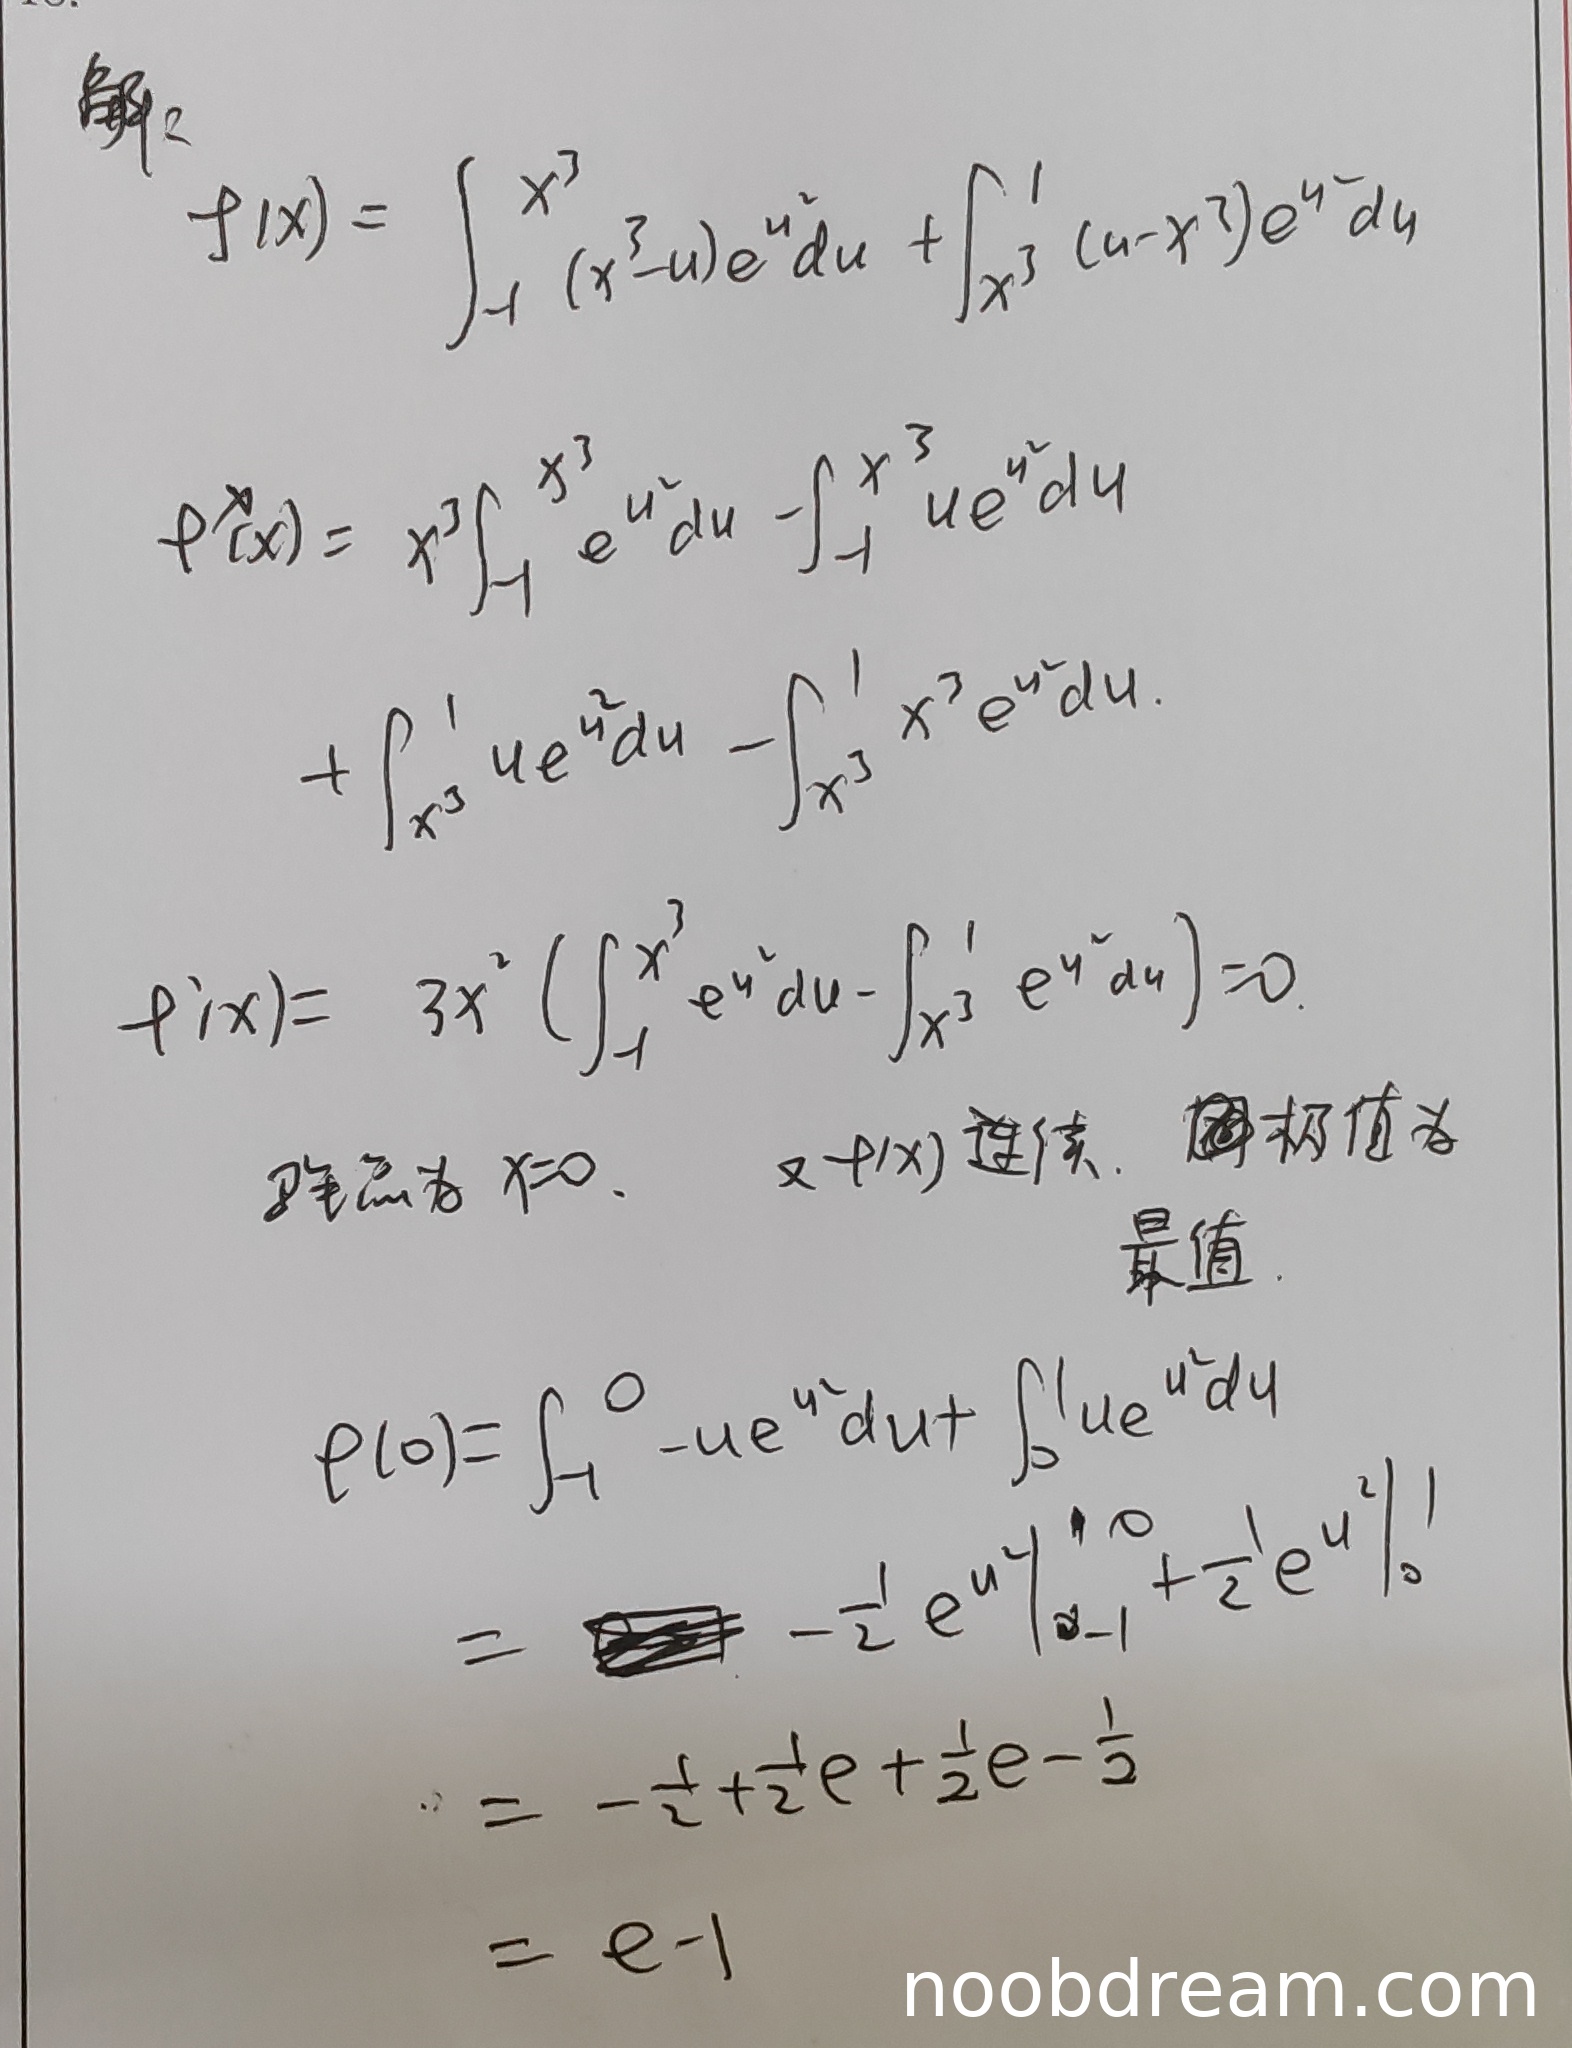 解:
f(x) = ∫_{-1}^{x³} (x³-u)e^{u²}du + ∫_{x³}^{1} (u-x³)e^{u²}du
f(x) = x³∫_{-1}^{x³} e^{u²}du - ∫_{-1}^{x³} ue^{u²}du
+ ∫_{x³}^{1} ue^{u²}du - ∫_{x³}^{1} x³e^{u²}du.
f'(x) = 3x²(∫_{-1}^{x³} e^{u²}du - ∫_{x³}^{1} e^{u²}du) = 0.
驻点为 x=0. 又 f(x) 连续. 极值为
最值.
f(0) = ∫_{-1}^{0} -ue^{u²}du + ∫_{0}^{1} ue^{u²}du
= -1/2 e^{u²}|_{-1}^{0} + 1/2 e^{u²}|_{0}^{1}
= -1/2 + 1/2 e + 1/2 e - 1/2
= e-1
noobdream.com